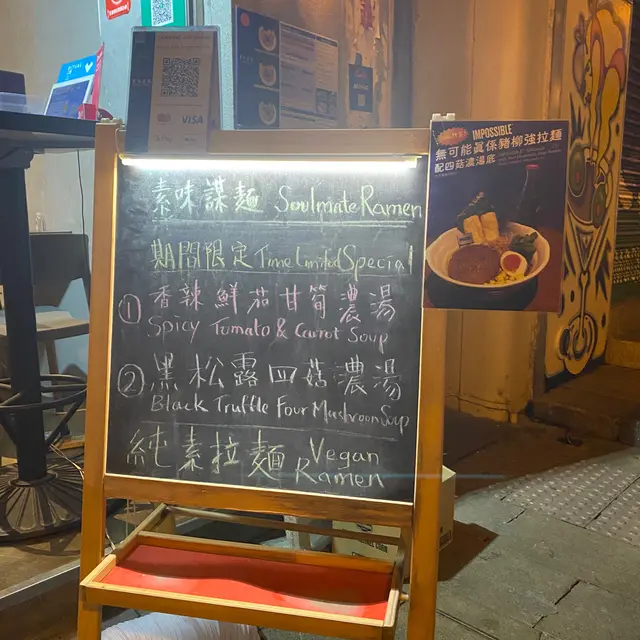 素味謀麵 Soulmate Ramen
期間限定 Time Limited Special
① 香辣鮮茄甘筍濃湯
Spicy Tomato & Carrot Soup
② 黑松露四菇濃湯
Black Truffle Four Mushroom Soup
純素拉麵 Vegan
Ramen
IMPOSSIBLE
無可能真係豬柳強拉麵
配四菇濃湯底
VISA